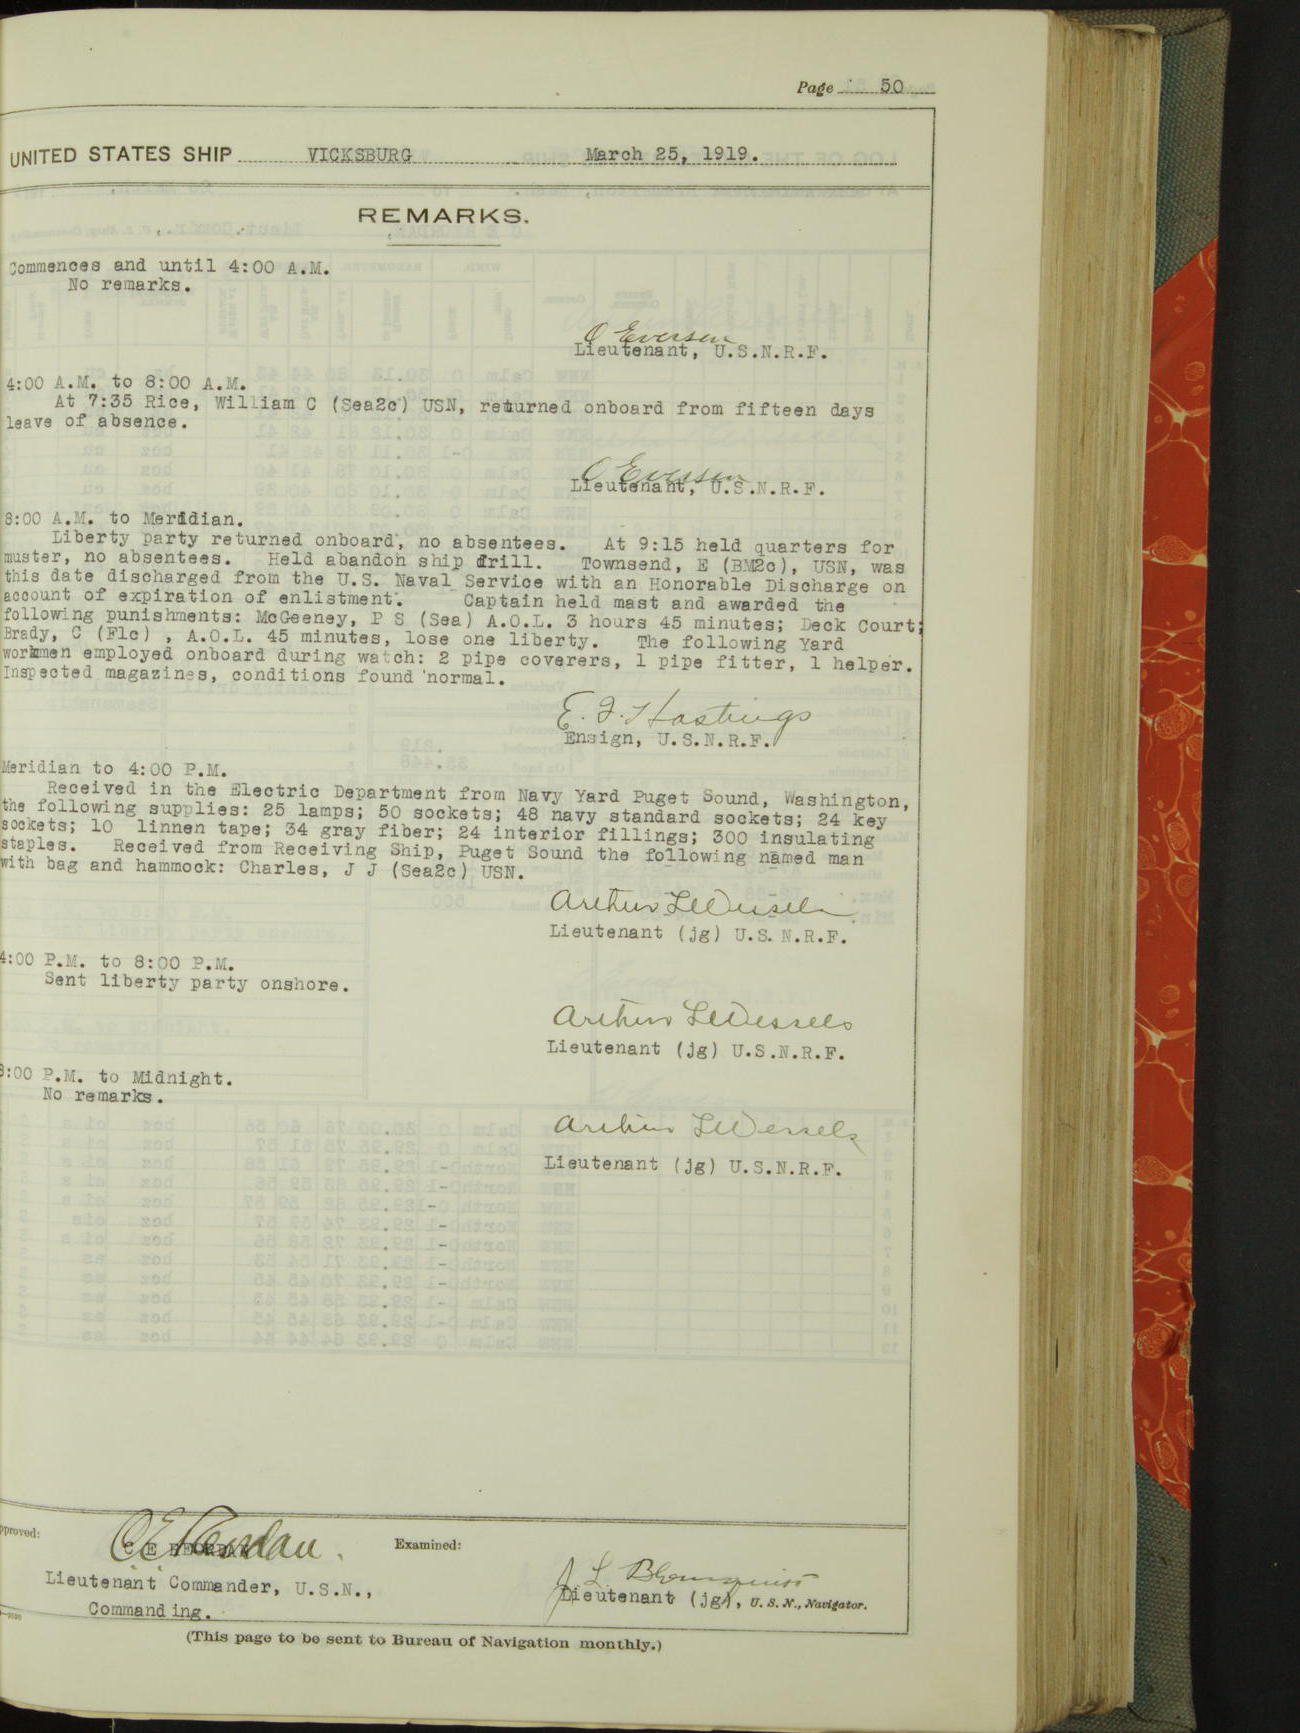 Page 50
UNITED STATES SHIP VICKSBURG March 25, 1919.
REMARKS.
Commences and until 4:00 A.M.
No remarks.
O Eversen
Lieutenant, U.S.N.R.F.
4:00 A.M. to 8:00 A.M.
At 7:35 Rice, William C (Sea2c) USN, returned onboard from fifteen days
leave of absence.
O Eversen
Lieutenant, U.S.N.R.F.
8:00 A.M. to Meridian.
Liberty party returned onboard, no absentees. At 9:15 held quarters for
muster, no absentees. Held abandon ship drill. Townsend, E (BM2c), USN, was
this date discharged from the U.S. Naval Service with an Honorable Discharge on
account of expiration of enlistment. Captain held mast and awarded the
following punishments: McGeeney, P S (Sea) A.O.L. 3 hours 45 minutes; Deck Court;
Brady, C (F1c) , A.O.L. 45 minutes, lose one liberty. The following Yard
workmen employed onboard during watch: 2 pipe coverers, 1 pipe fitter, 1 helper.
Inspected magazines, conditions found normal.
E. J. Hastings
Ensign, U.S.N.R.F.
Meridian to 4:00 P.M.
Received in the Electric Department from Navy Yard Puget Sound, Washington,
the following supplies: 25 lamps; 50 sockets; 48 navy standard sockets; 24 key
sockets; 10 linnen tape; 34 gray fiber; 24 interior fillings; 300 insulating
staples. Received from Receiving Ship, Puget Sound the following named man
with bag and hammock: Charles, J J (Sea2c) USN.
Arthur L Wessels
Lieutenant (jg) U.S.N.R.F.
4:00 P.M. to 8:00 P.M.
Sent liberty party onshore.
Arthur L Wessels
Lieutenant (jg) U.S.N.R.F.
8:00 P.M. to Midnight.
No remarks.
Arthur L Wessels
Lieutenant (jg) U.S.N.R.F.
pproved:
C E REORDAN
Examined:
Lieutenant Commander, U.S.N.,
J L Blomquist
Lieutenant (jg), U. S. N., Navigator.
Commanding.
(This page to be sent to Bureau of Navigation monthly.)